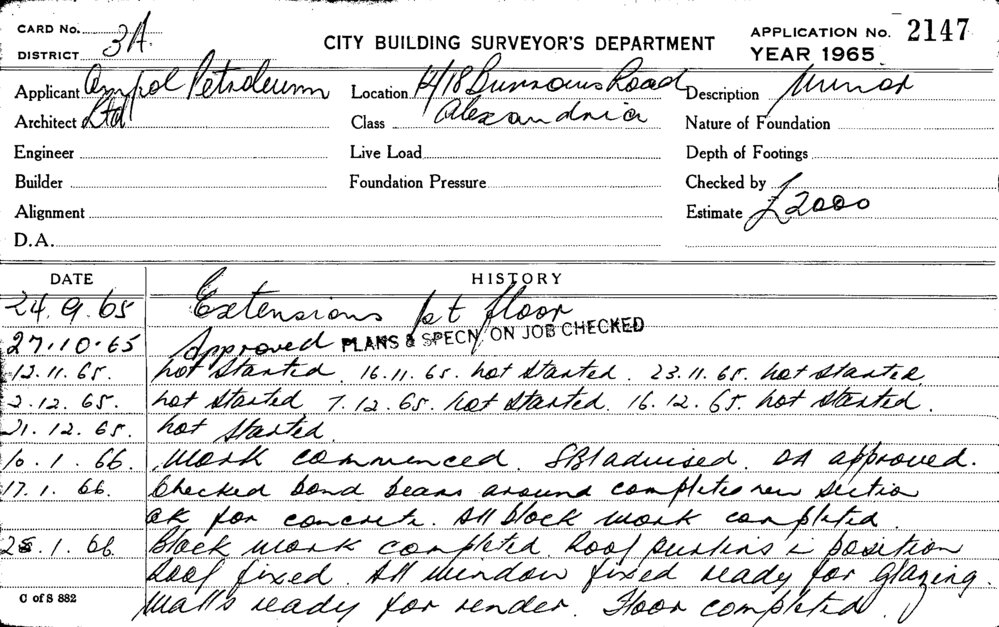 CARD No. 3A. CITY BUILDING SURVEYOR'S DEPARTMENT APPLICATION No. 2147
DISTRICT YEAR 1965
Applicant Ampol Petroleum Location 14/18 Road Description Minor
Architect Ltd Class Alexandria Nature of Foundation
Engineer Live Load Depth of Footings
Builder Foundation Pressure Checked by
Alignment Estimate £2000
D.A.
DATE HISTORY
24.9.65 Extensions 1st floor
27.10.65 Approved PLANS & SPECN/ ON JOB CHECKED
12.11.65. not started. 16.11.65. not started. 23.11.65. not started
2.12.65. not started 7.12.65. not started. 16.12.65. not started.
21.12.65. not started.
10.1.66. Work commenced. advised. DA approved.
17.1.66. Checked bond beam around completed new section
OK for concrete. All block work completed.
25.1.66. Block work completed. Roof purlins in position
Roof fixed. All window fixed ready for glazing.
C of S 882 Walls ready for render. Floor completed.